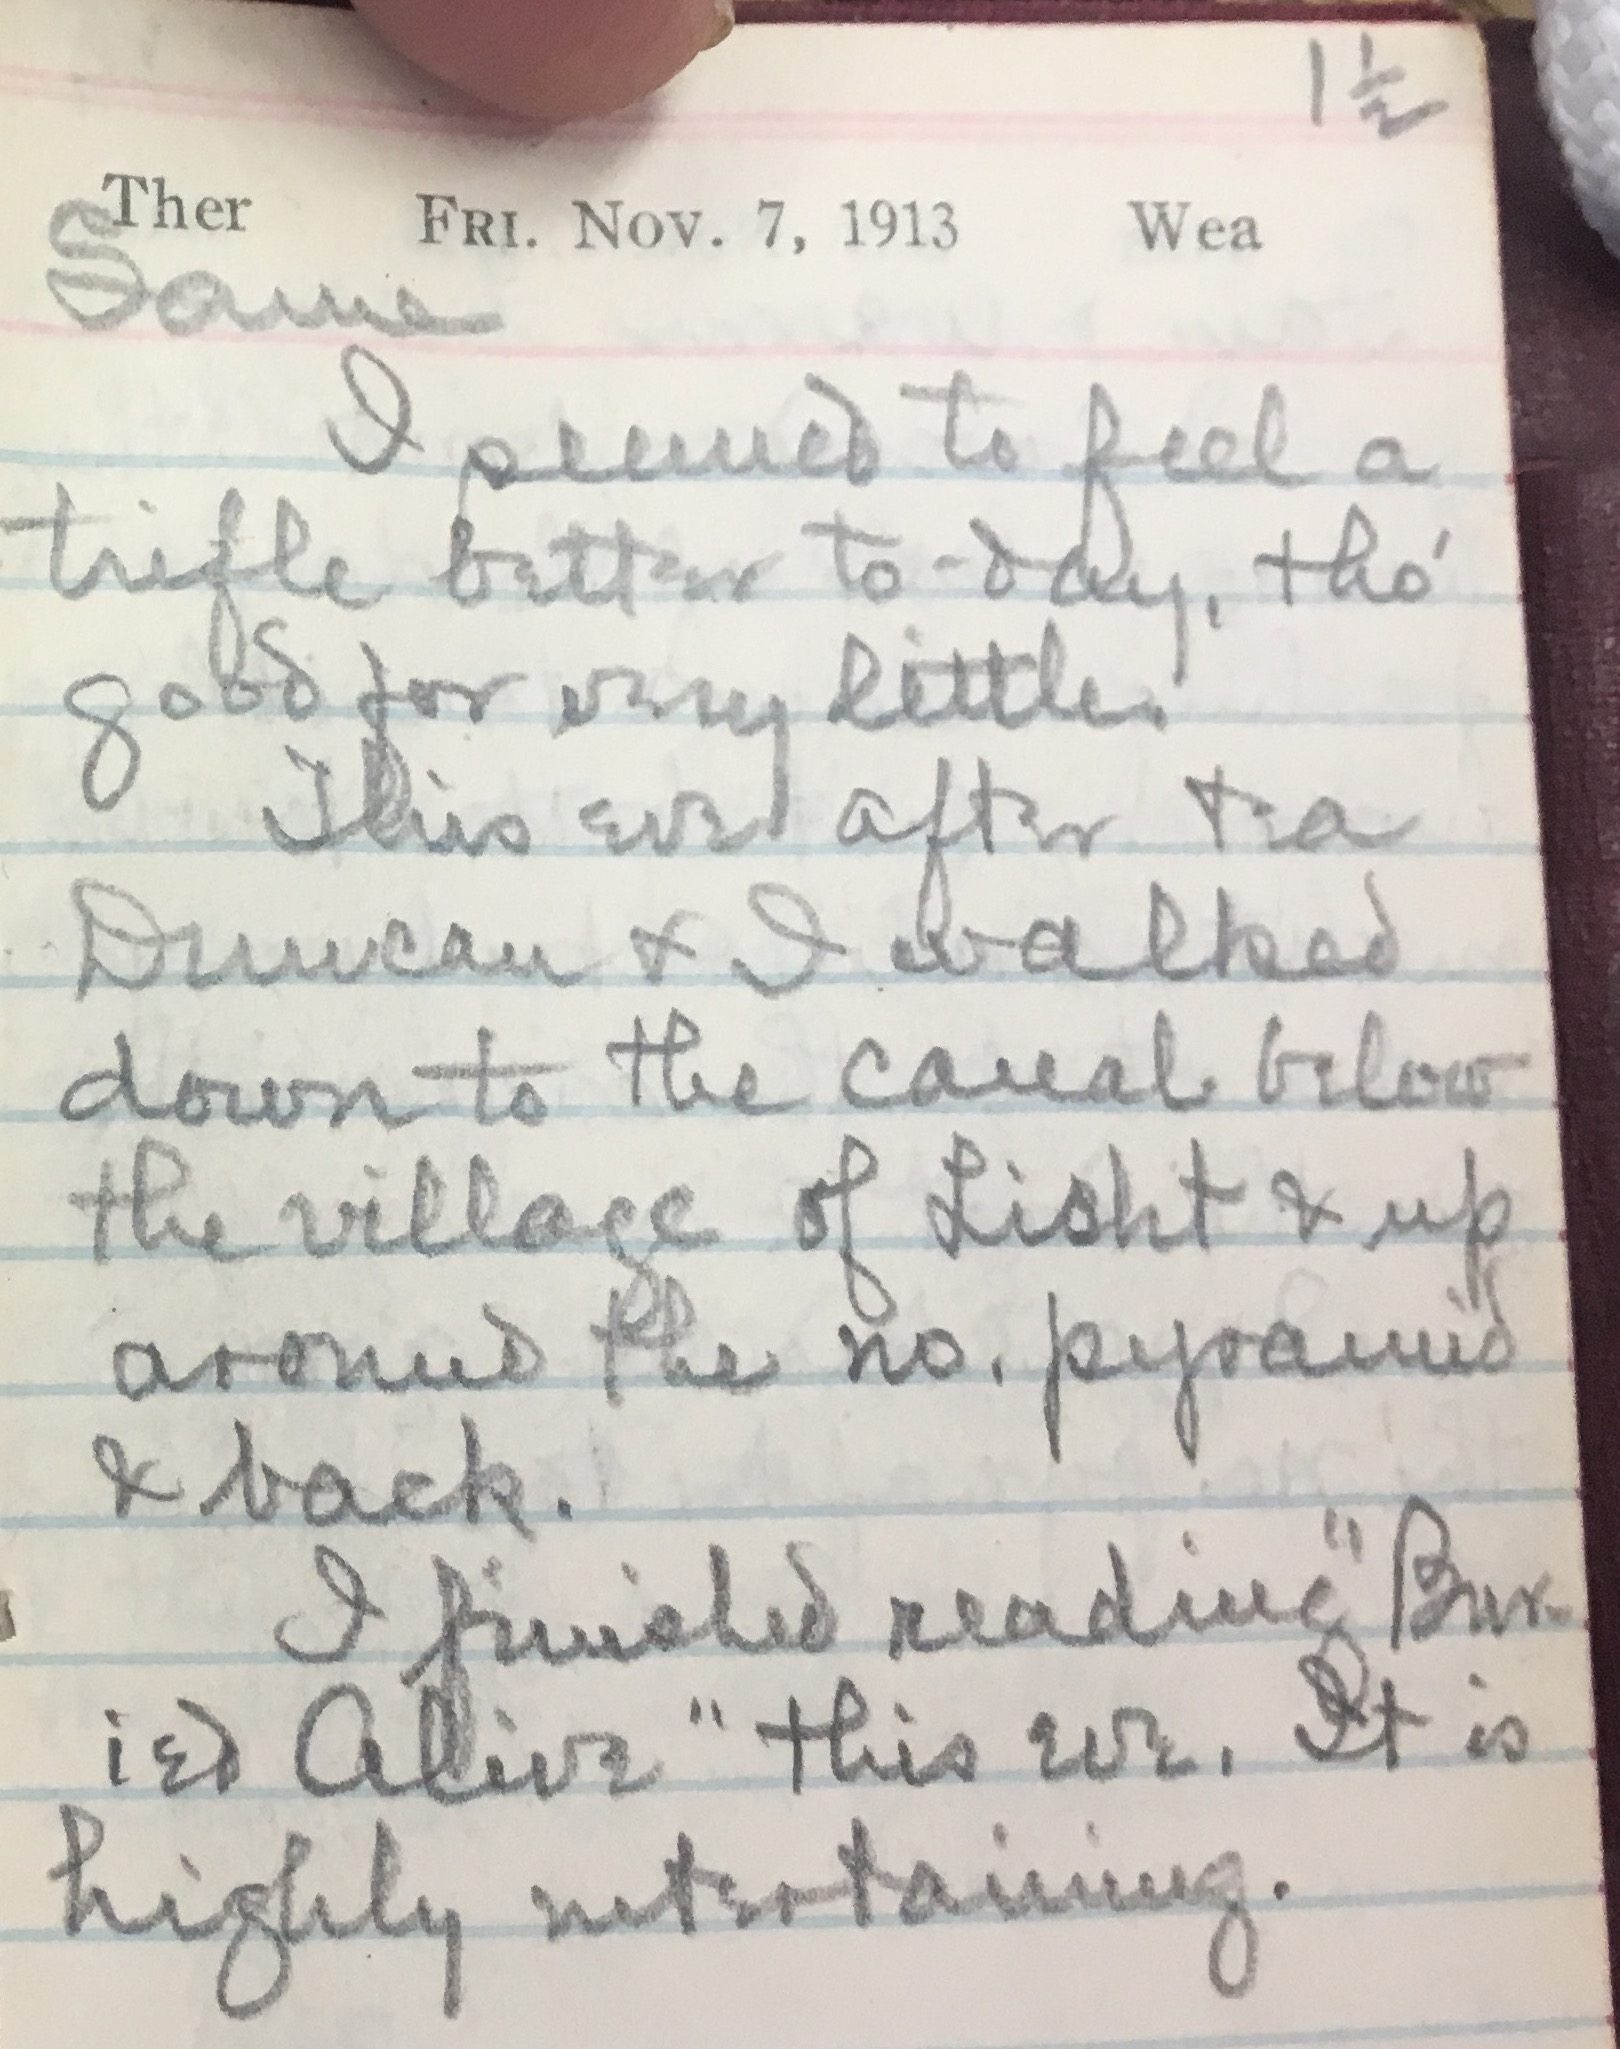 1 1/2
Ther FRI. NOV. 7, 1913 Wea
Same
I seemed to feel a
trifle better to-day, tho'
good for very little.
This eve after tea
Duncan & I walked
down to the canal below
the village of Lisht & up
around the no. pyramid
& back.
I finished reading "Bur-
ied Alive" this eve. It is
highly entertaining.